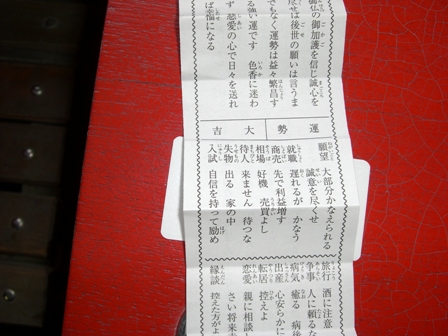 御仏の御加護を信じ誠心を
尽せば後世の願いは言うま
でもなく運勢は益々繁昌す
る強い運です 色香に迷わ
ず 慈愛の心で日々を送れ
ば幸福になる
運勢 大吉
願望 大部分かなえられる
誠意を尽くせ
就職 遅れるが かなう
商売 先で利益増す
相場 好機 売買よし
待人 来ません 待つな
失物 出る 家の中
入試 自信を持って励め
旅行 酒に注意
争事 人に頼るな
病気 癒る 病後
出産 心安らかに
転居 控えよ
恋愛 親に相談
さい将来
縁談 控えた方がよ